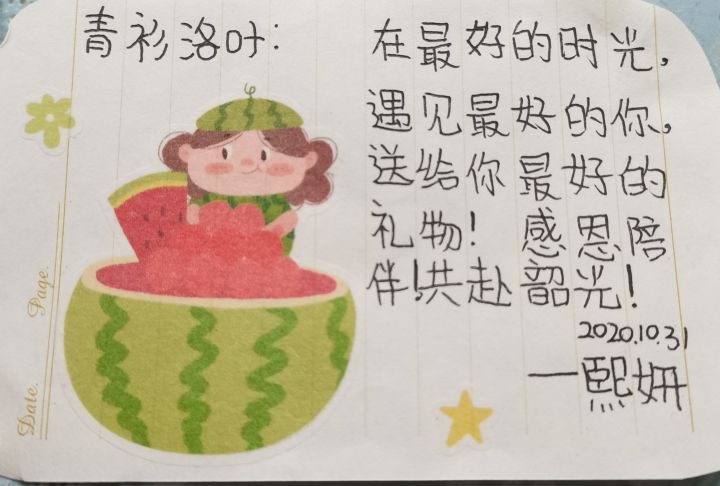 青衫洛叶:
在最好的时光,
遇见最好的你,
送给你最好的
礼物! 感恩陪
伴!共赴韶光!
2020.10.31
—熙妍
Page.
Date.